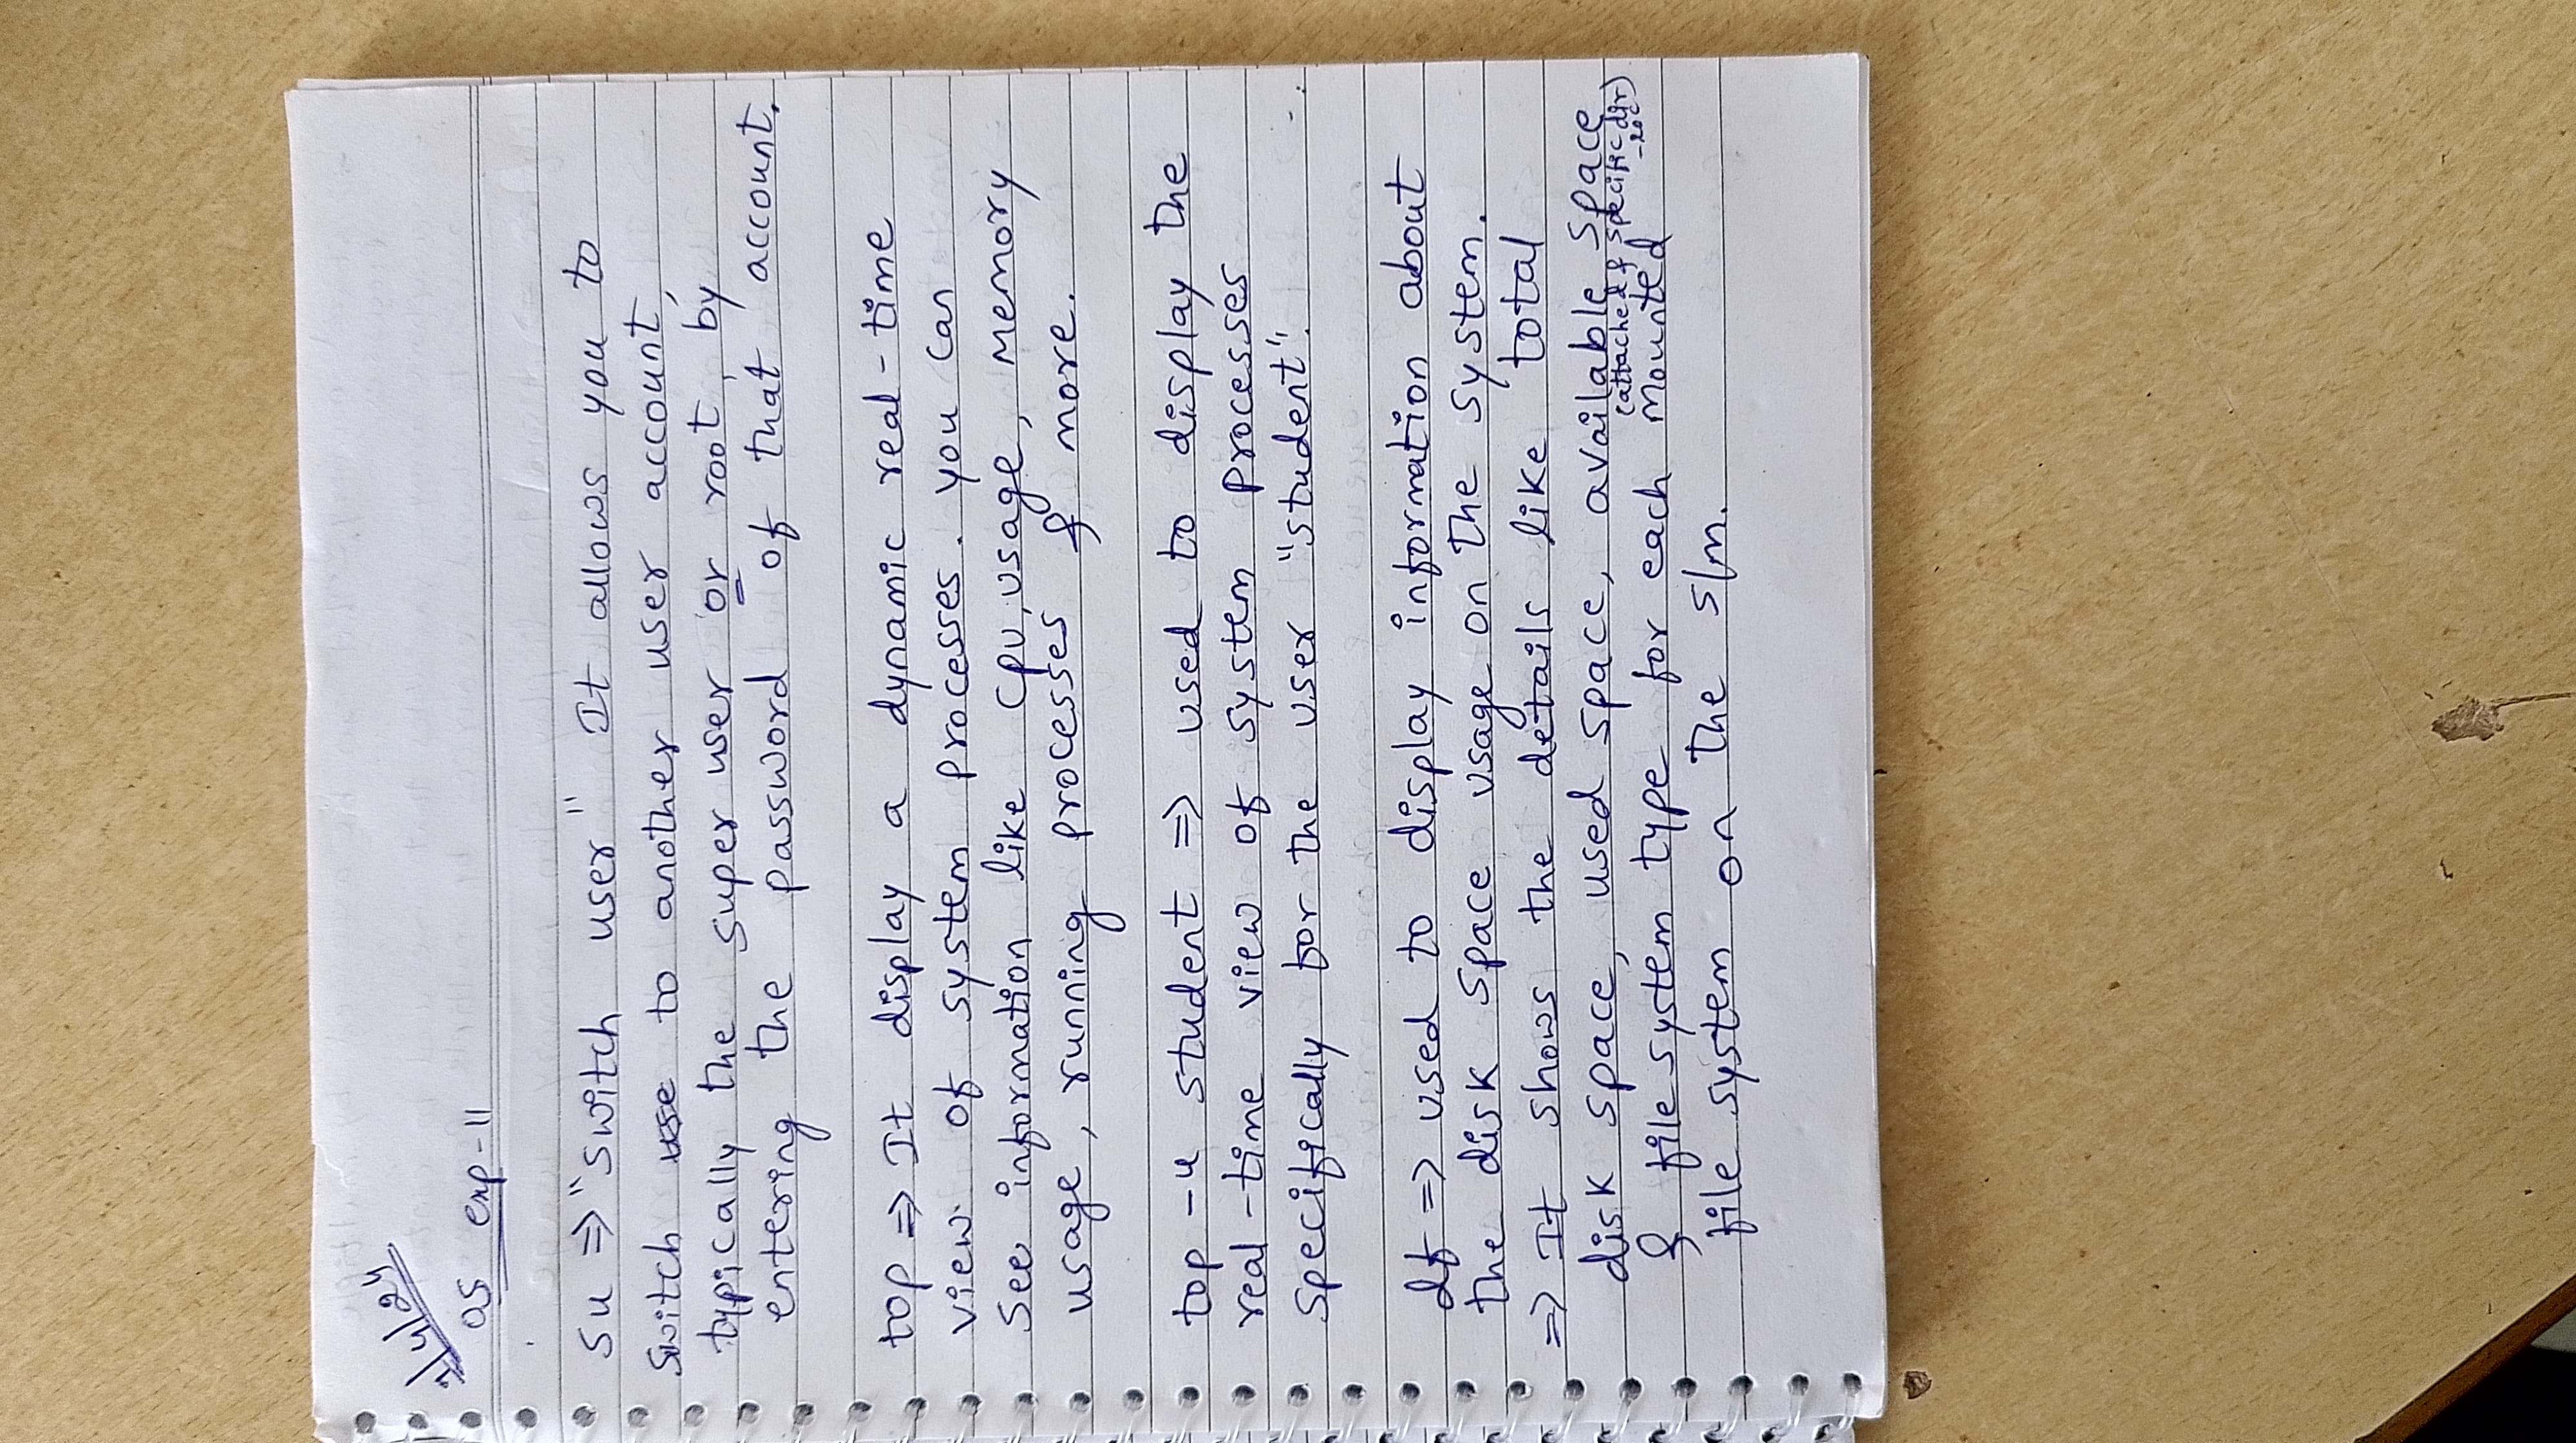 OS exp-11
su => "switch user" It allows you to
switch to another user user account,
typically the super user or root, by
entering the password of that account.
top => It display a dynamic real-time
view of system processes. you can
see information like cpu usage, memory
usage, running processes & more.
top -u student => used to display the
real-time view of system processes
specifically for the user "student".
df => used to display information about
the disk space usage on the system.
=> It shows the details like total
disk space, used space, available space
(attached of specific dir)
& file system type for each mounted
file system on the s/m.